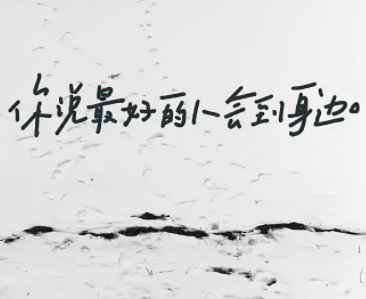 你说最好的人会到身边。